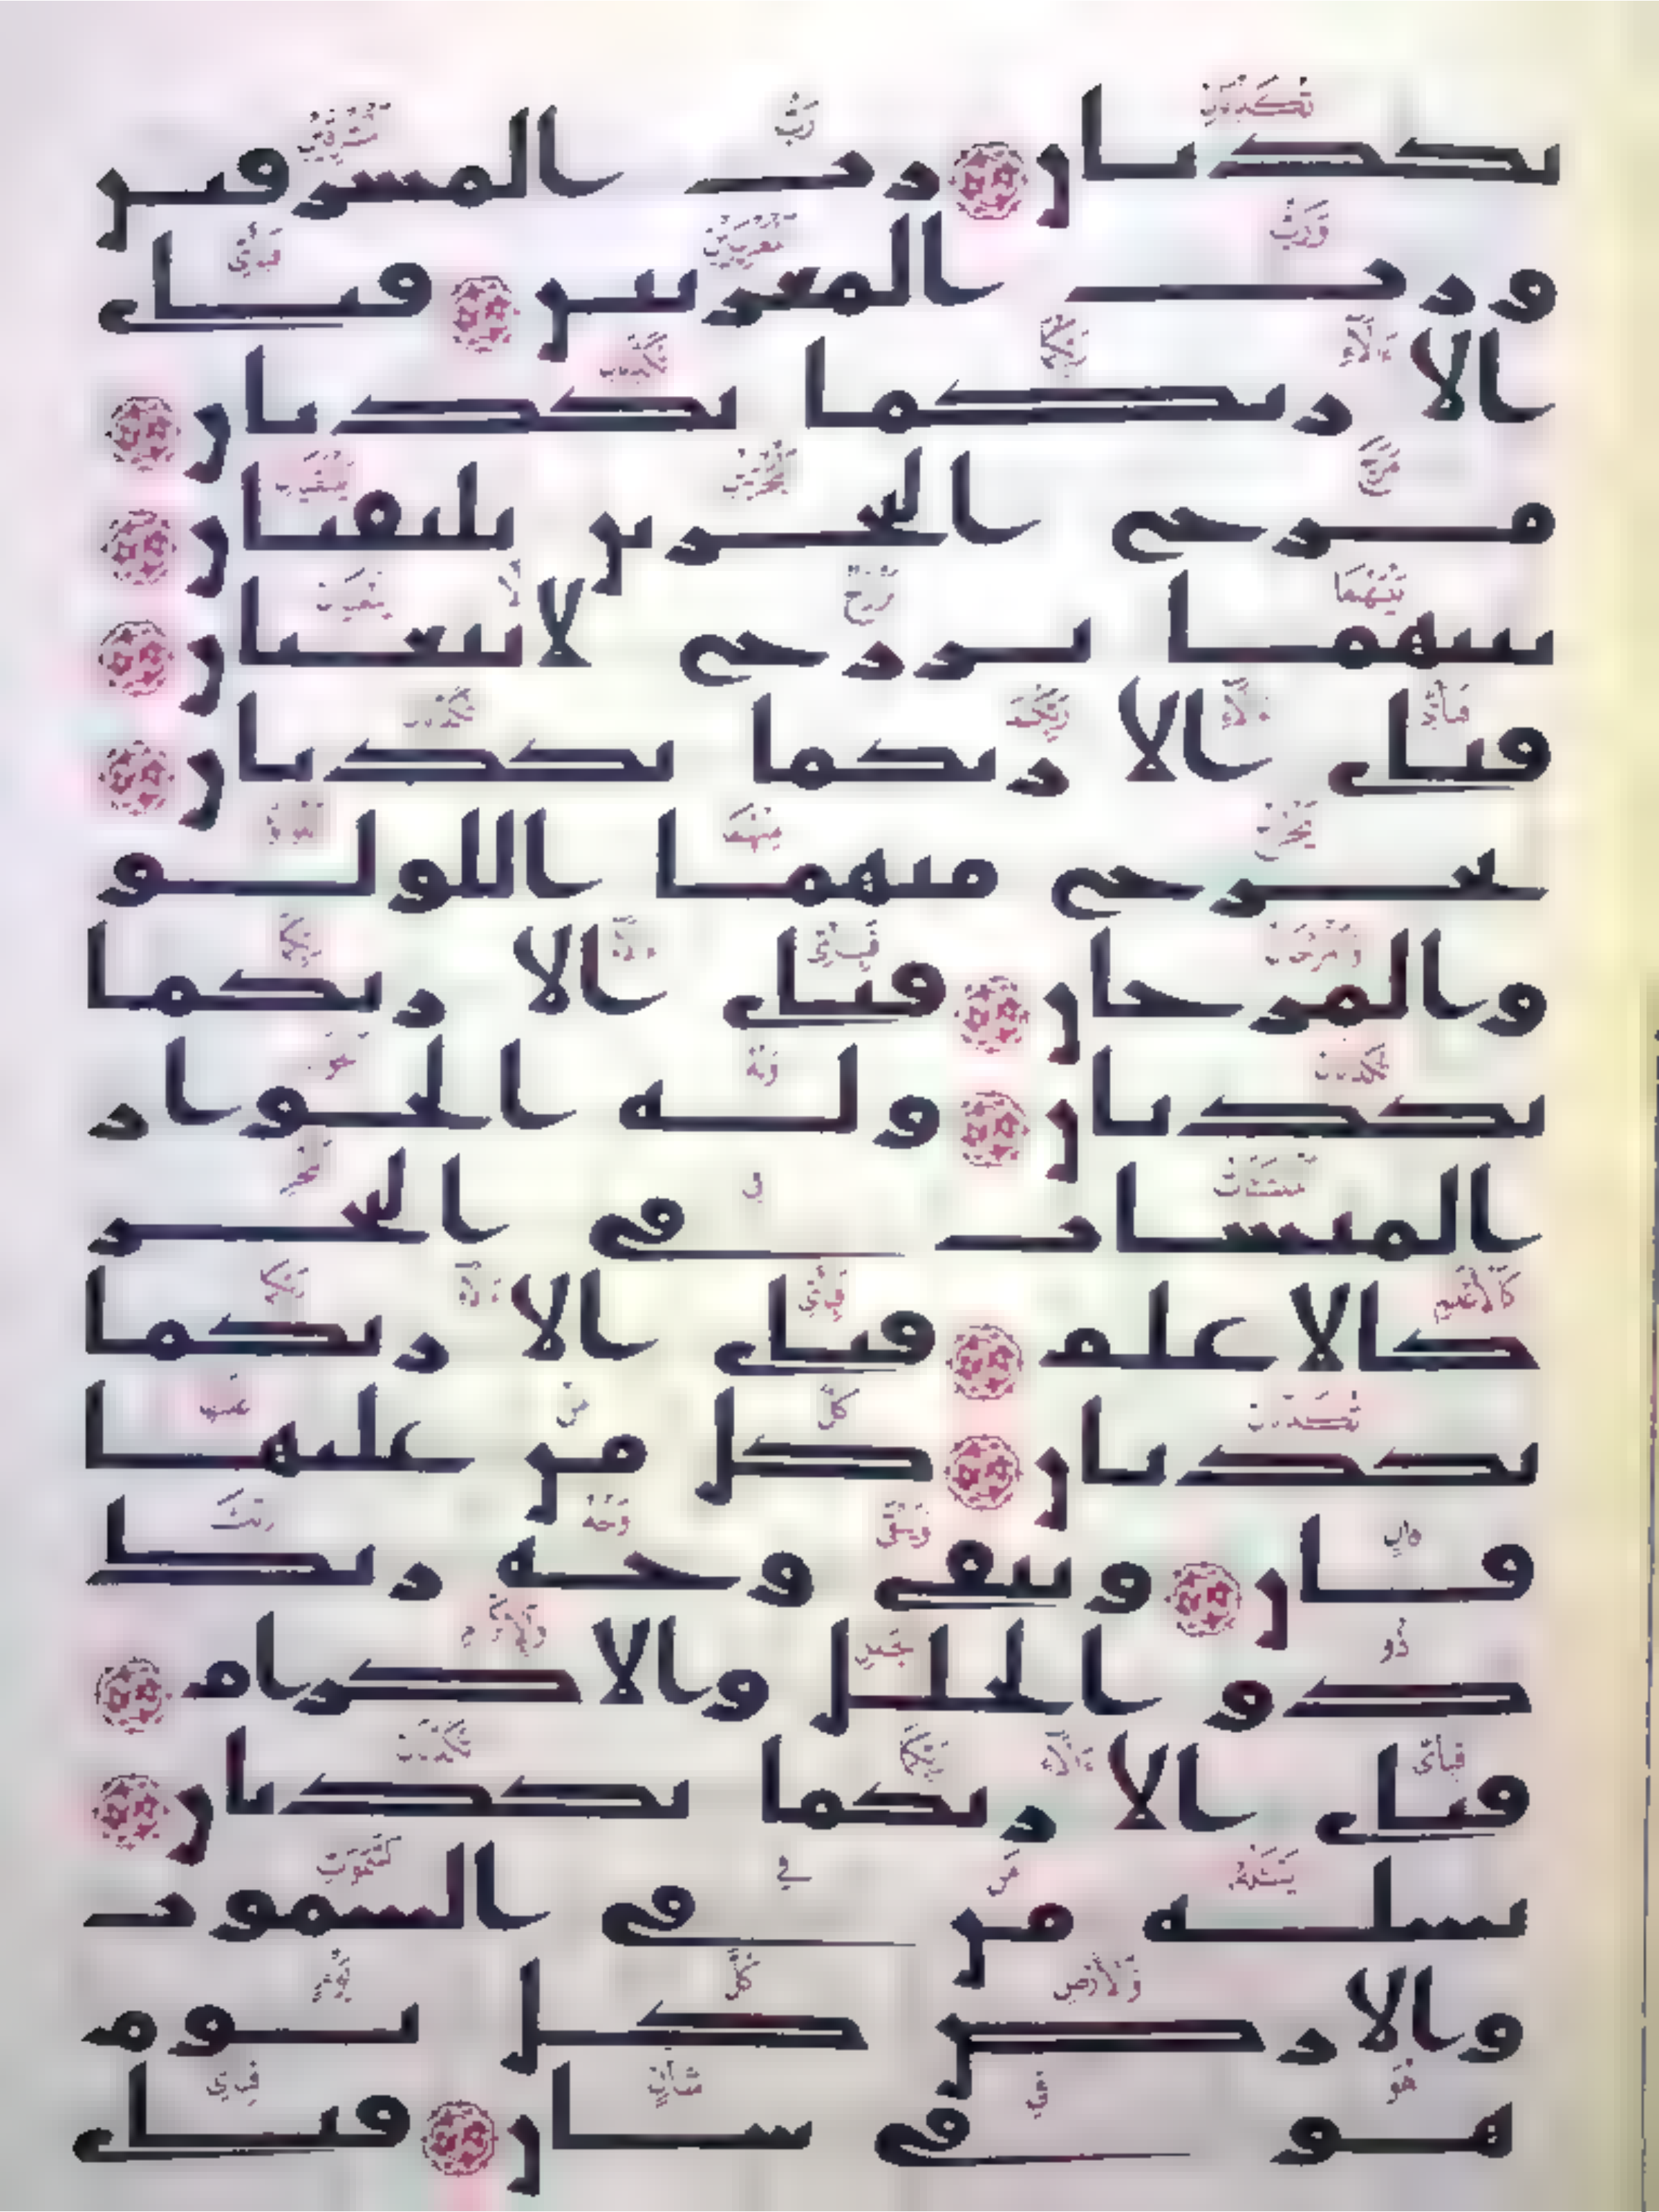 تكذبان رب المشرقين
ورب المغربين فباي
الا ربكما تكذبان
مرج البحرين يلتقيان
بينهما برزخ لا يبغيان
فباي الا ربكما تكذبان
يخرج منهما اللولو
والمرجان فباي الا ربكما
تكذبان وله الجوار
المنشات في البحر
كالاعلم فباي الا ربكما
تكذبان كل من عليها
فان ويبقى وجه ربك
ذو الجلل والاكرام
فباي الا ربكما تكذبان
يسله من في السموت
والارض كل يوم
هو في شان فباي